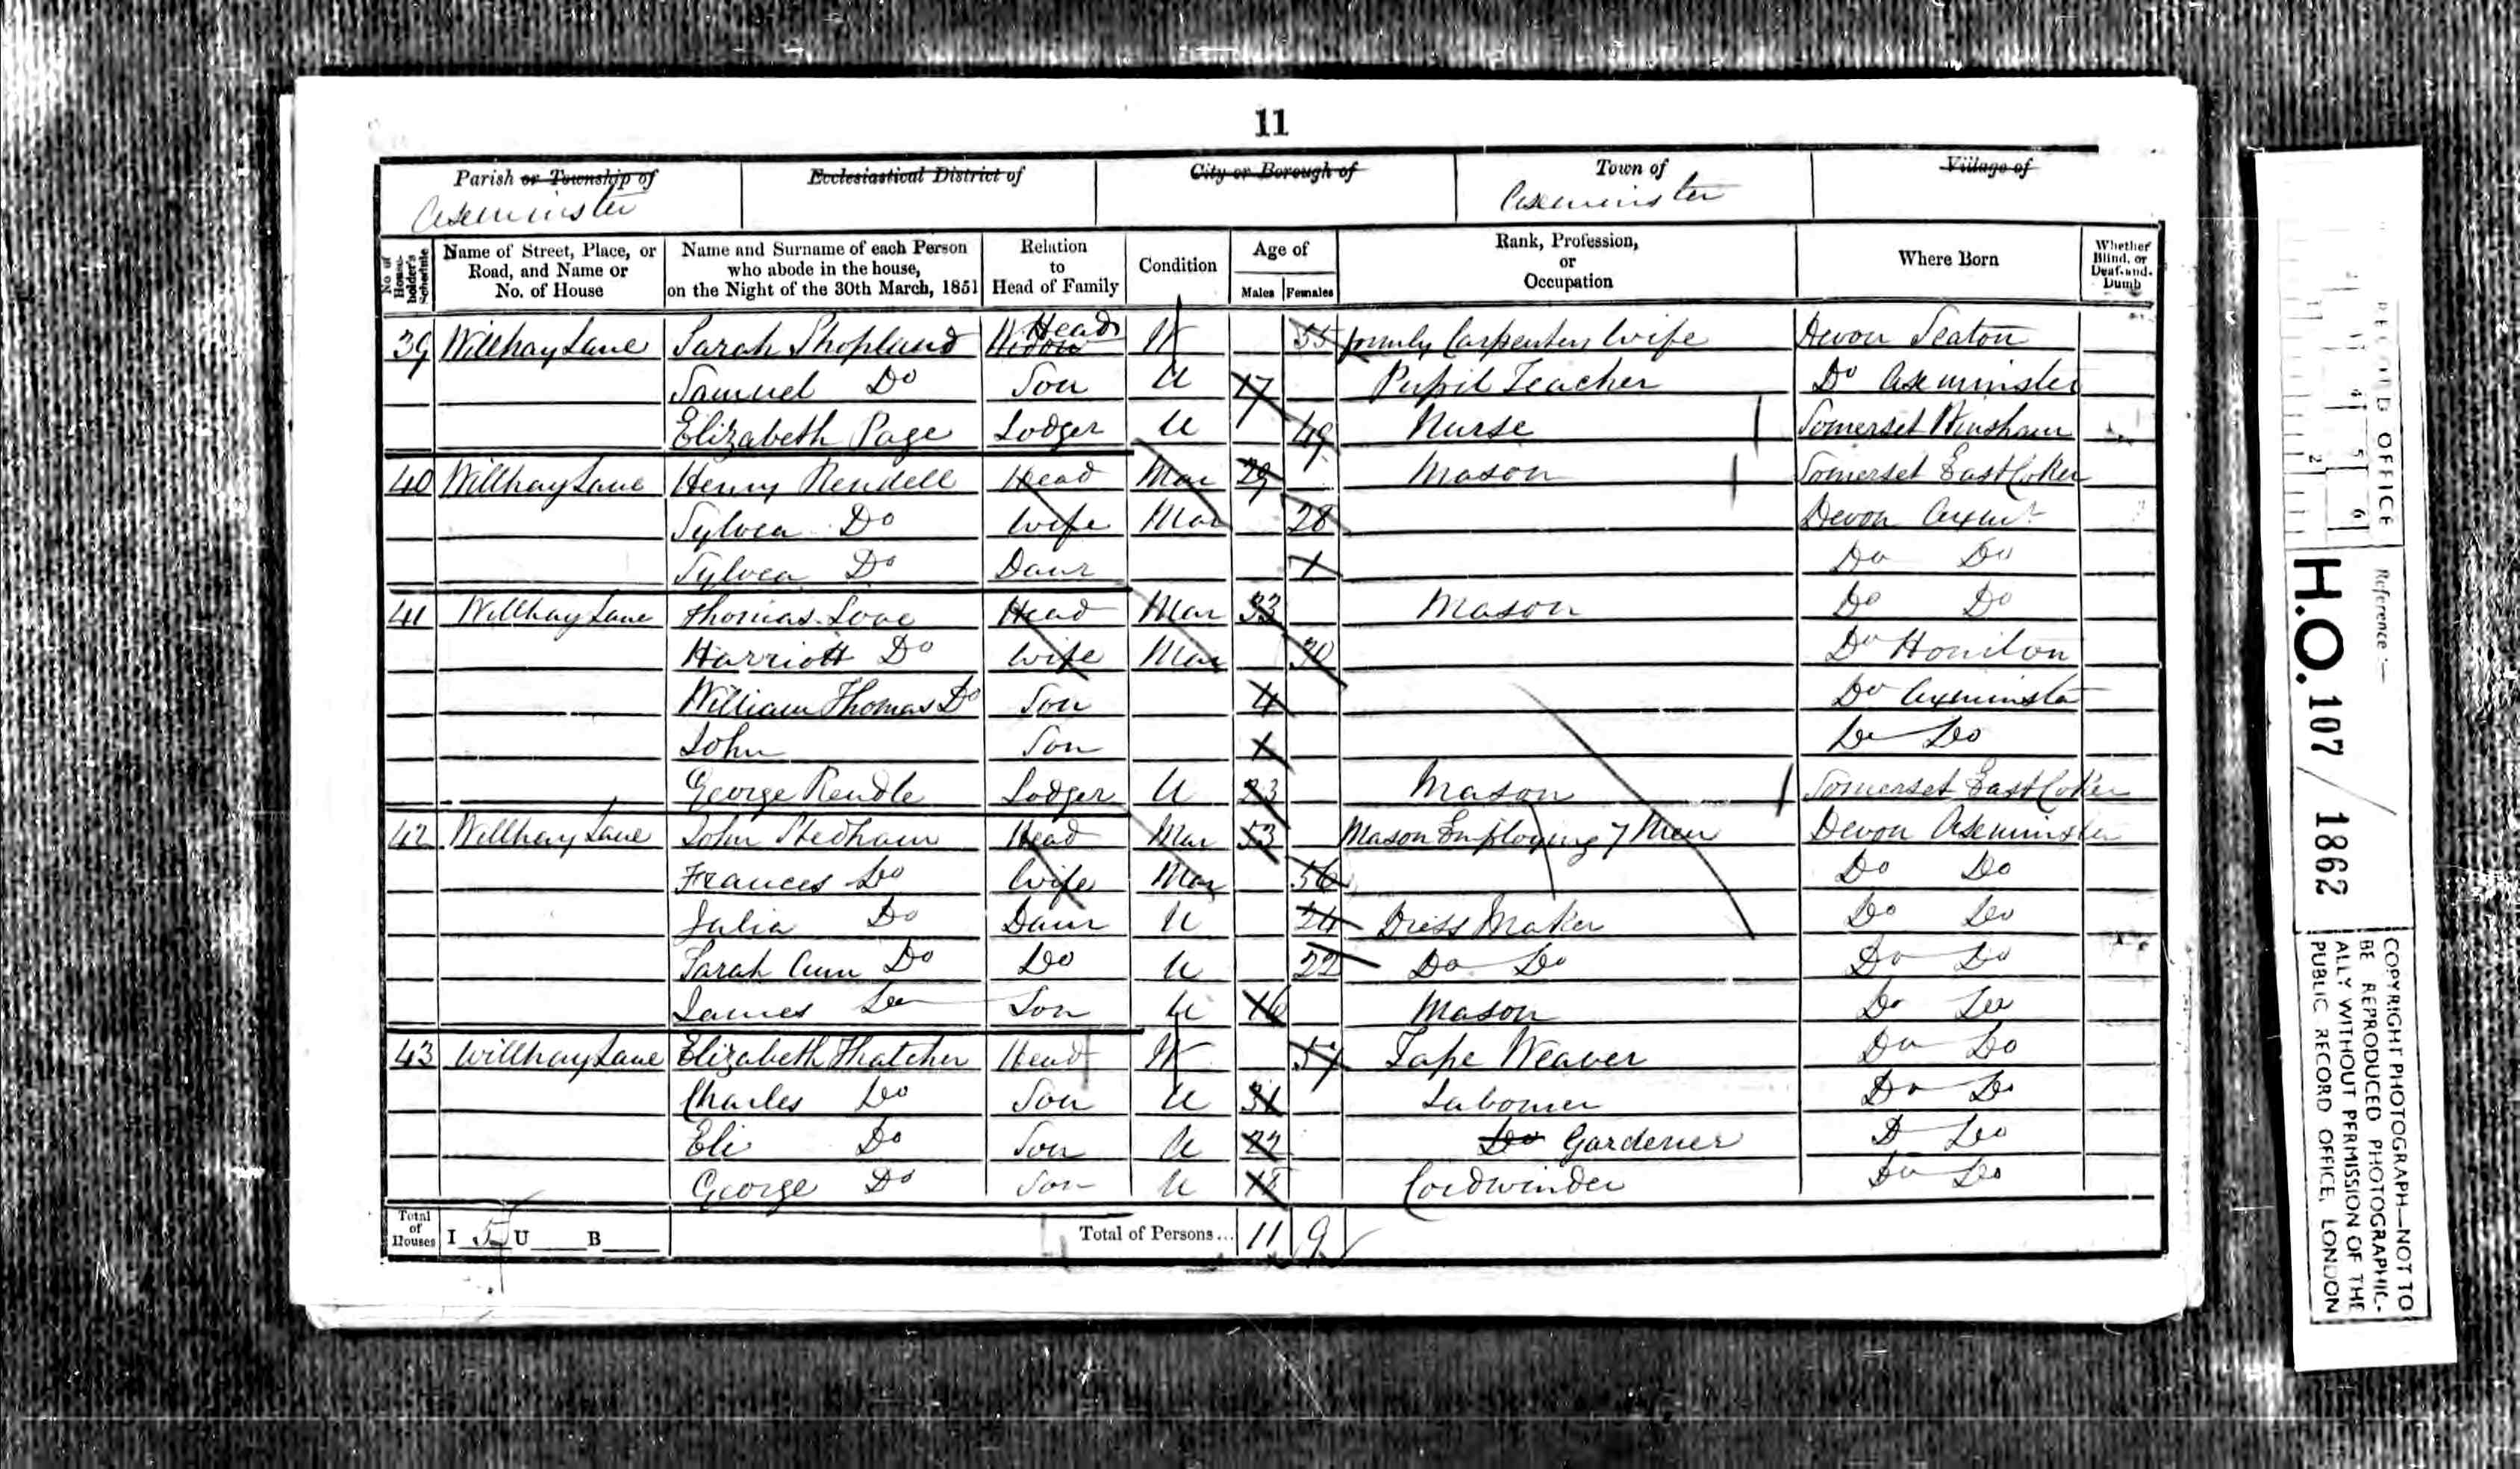 11
Parish or Township of
Axeminster
Ecclesiastical District of
City or Borough of
Town of
Axeminster
Village of
No. of House-holder's Schedule
Name of Street, Place, or Road, and Name or No. of House
Name and Surname of each Person who abode in the house, on the Night of the 30th March, 1851
Relation to Head of Family
Condition
Age of
Males Females
Rank, Profession, or Occupation
Where Born
Whether Blind, or Deaf-and-Dumb
39 Willhay Lane Sarah Shopland Widow Head W 55 formerly Carpenters Wife Devon Seaton
Samuel Do Son U 17 Pupil Teacher Do Axeminster
Elizabeth Page Lodger U 49 Nurse Somerset Winsham
40 Willhay Lane Henry Rendell Head Mar 29 Mason Somerset East Coker
Sylvea Do Wife Mar 28 Devon Axmr
Sylvea Do Daur 1 Do Do
41 Willhay Lane Thomas Love Head Mar 33 Mason Do Do
Harriott Do Wife Mar 30 Do Honiton
William Thomas Do Son 4 Do Axminster
John Son 1 Do Do
George Rendle Lodger U 23 Mason Somerset East Coker
42 Willhay Lane John Stedham Head Mar 53 Mason Employing 7 Men Devon Axeminster
Frances Do Wife Mar 56 Do Do
Julia Do Daur U 24 Dress Maker Do Do
Sarah Ann Do Do U 22 Do Do Do Do
James Do Son U 16 Mason Do Do
43 Willhay Lane Elizabeth Thatcher Head W 57 Tape Weaver Do Do
Charles Do Son U 31 Labourer Do Do
Eli Do Son U 22 Do Gardener D Do
George Do Son U Cordwinder Do Do
Total of Houses I 5 U B Total of Persons... 11 9
RECORD OFFICE
Reference :-
H.O. 107 / 1862
COPYRIGHT PHOTOGRAPH—NOT TO
BE REPRODUCED PHOTOGRAPHIC-
ALLY WITHOUT PERMISSION OF THE
PUBLIC RECORD OFFICE, LONDON